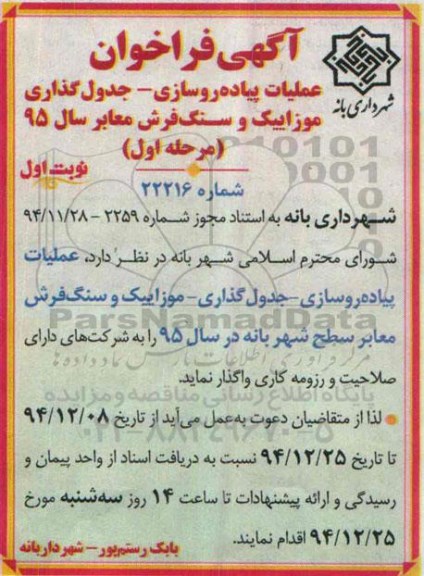 آگهی فراخوان
شهرداری بانه
عملیات پیاده‌روسازی - جدول گذاری
موزاییک و سنگ‌فرش معابر سال ۹۵
(مرحله اول)
نوبت اول
شماره ۲۲۲۱۶
شهرداری بانه به استناد مجوز شماره ۲۲۵۹ - ۹۴/۱۱/۲۸
شورای محترم اسلامی شهر بانه در نظر دارد، عملیات
پیاده‌روسازی-جدول‌گذاری-موزاییک و سنگ‌فرش
معابر سطح شهر بانه در سال ۹۵ را به شرکت‌های دارای
صلاحیت و رزومه کاری واگذار نماید.
لذا از متقاضیان دعوت به‌عمل می‌آید از تاریخ ۹۴/۱۲/۰۸
تا تاریخ ۹۴/۱۲/۲۵ نسبت به دریافت اسناد از واحد پیمان و
رسیدگی و ارائه پیشنهادات تا ساعت ۱۴ روز سه‌شنبه مورخ
۹۴/۱۲/۲۵ اقدام نمایند.
بابک رستم‌پور - شهردار بانه
ParsNamadData
مرکز فرآوری اطلاعات پارس نماد داده ها
پایگاه اطلاع رسانی مناقصه و مزایده
۰۲۱-۸۸۳۴۹۶۷۰-۵